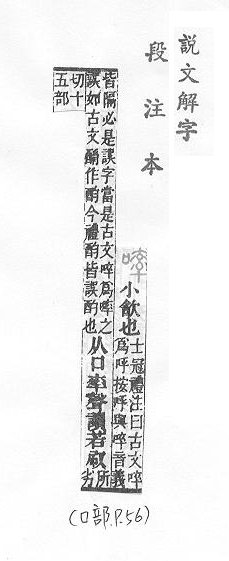 說文解字
段注本
小㱃也
士冠禮注曰古文啐
爲呼按呼與啐音義
皆隔必是誤字當是古文啐爲之
誤如古文酳作酌今禮酌皆誤酌也
从口率聲讀若㕞
所
劣
切十
五部
(口部.P.56)